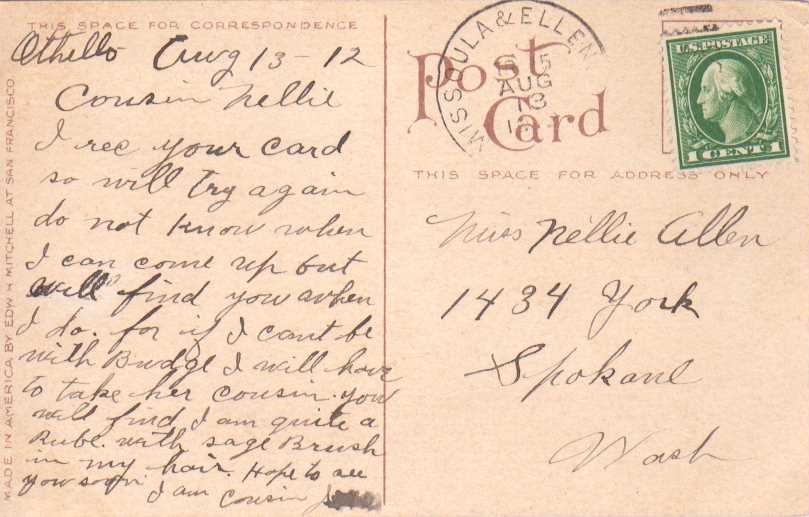 THIS SPACE FOR CORRESPONDENCE
Othello Aug 13-12
Cousin Nellie
I rec your card
so will try again
do not know when
I can come up but
will find you when
I do. for if I cant be
with Budge I will have
to take her cousin. you
will find I am quite a
Rube. with sage Brush
in my hair. Hope to see
you soon
I am cousin
MADE IN AMERICA BY EDW H MITCHELL AT SAN FRANCISCO
MISSOULA & ELLEN
AUG
13
Post
Card
U.S. POSTAGE
1 CENT 1
THIS SPACE FOR ADDRESS ONLY
Miss Nellie Allen
1434 York
Spokane
Wash